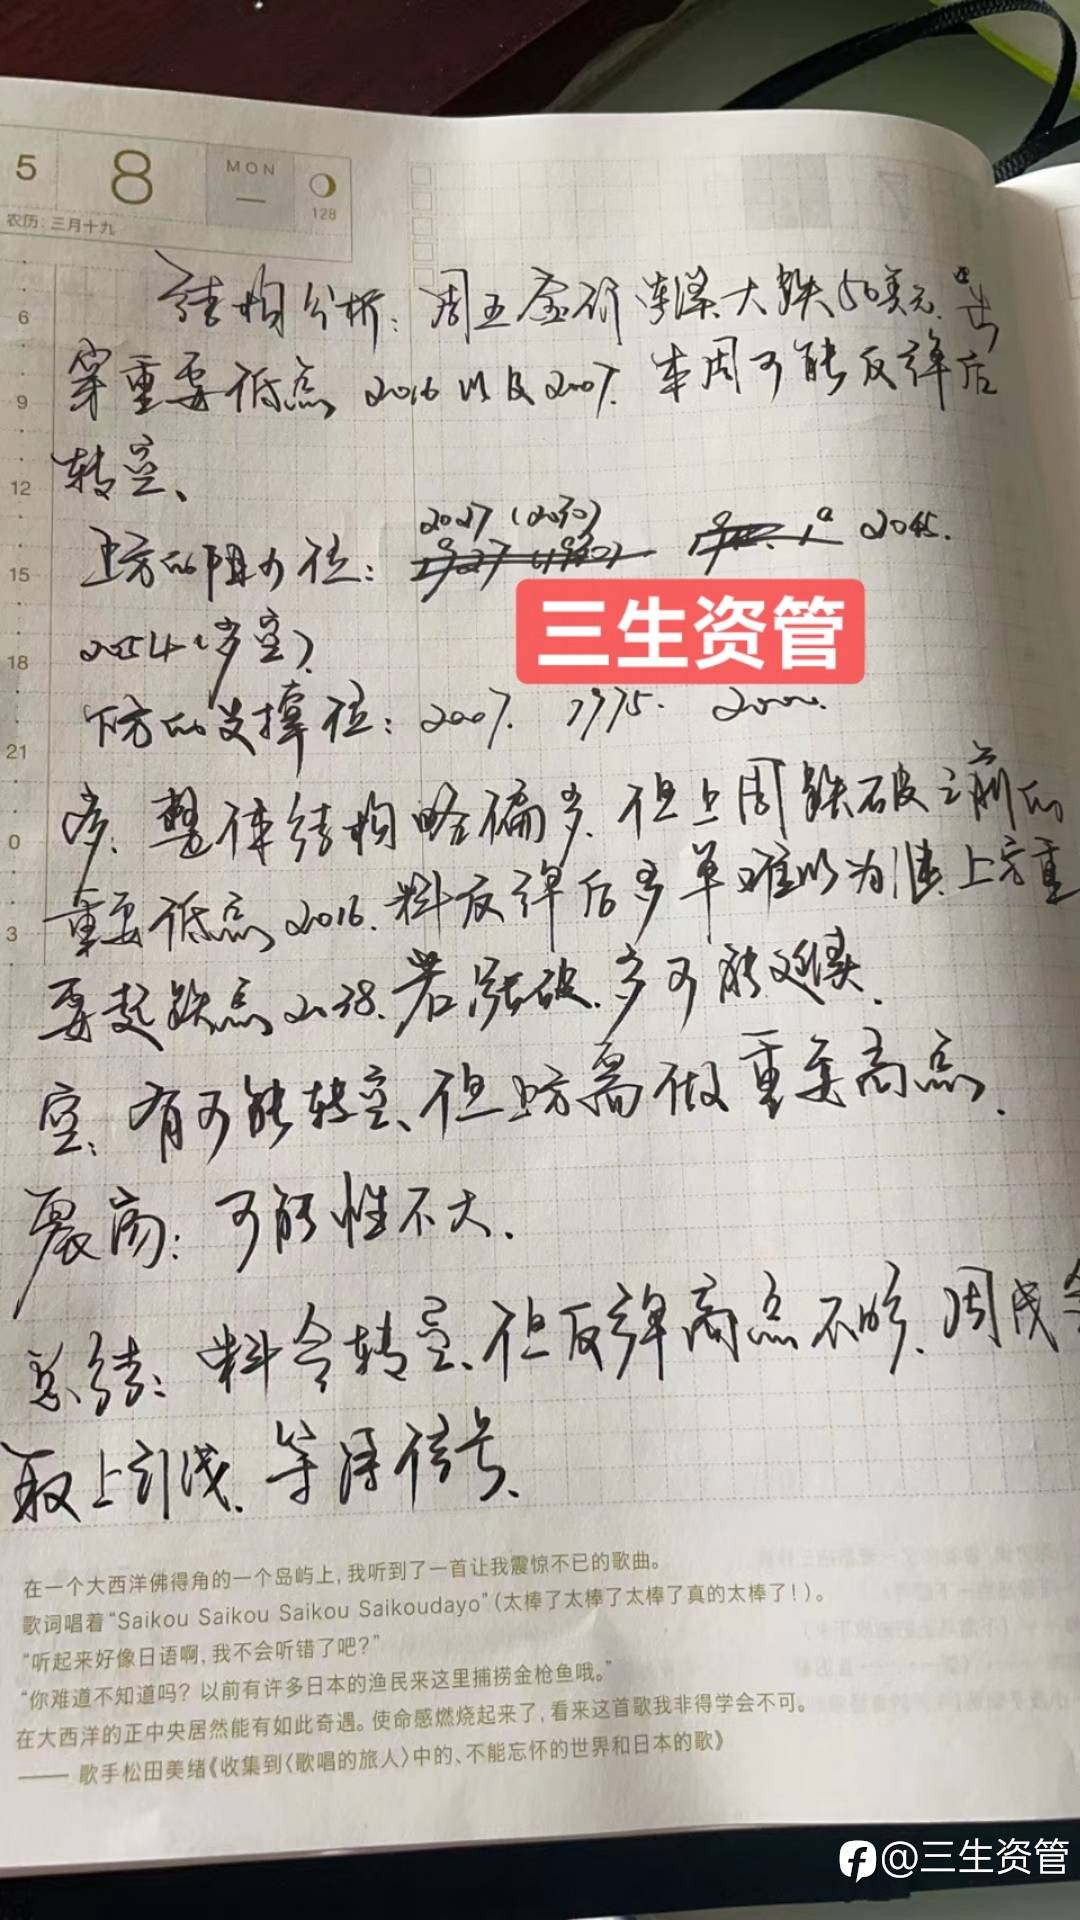 5 8 MON 一 128
农历:三月十九
结构分析:周五金价连续大跌50美元.
穿重要低点 2016 以及2007. 本周可能反弹后
转空、
2027 (2030)
上方的阻力位: 2045.
2054(多空)
下方的支撑位:2007. 1975. 2000.
多:整体结构略偏多.但上周跌破之前的
重要低点2016.料反弹后多单难以为继.上方重
要起跌点2038.若涨破.多可能延续.
空:有可能转空、但上方需做重要高点.
震荡:可能性不大.
总结:料会转空、但反弹高点不够.周线
取上引线.等待信号.
6
9
12
15
18
21
0
3
三生资管
在一个大西洋佛得角的一个岛屿上,我听到了一首让我震惊不已的歌曲。
歌词唱着“Saikou Saikou Saikou Saikoudayo”(太棒了太棒了太棒了真的太棒了!)。
“听起来好像日语啊,我不会听错了吧?”
“你难道不知道吗?以前有许多日本的渔民来这里捕捞金枪鱼哦。”
在大西洋的正中央居然能有如此奇遇。使命感燃烧起来了,看来这首歌我非得学会不可。
—— 歌手松田美绪《收集到〈歌唱的旅人〉中的、不能忘怀的世界和日本的歌》
@三生资管